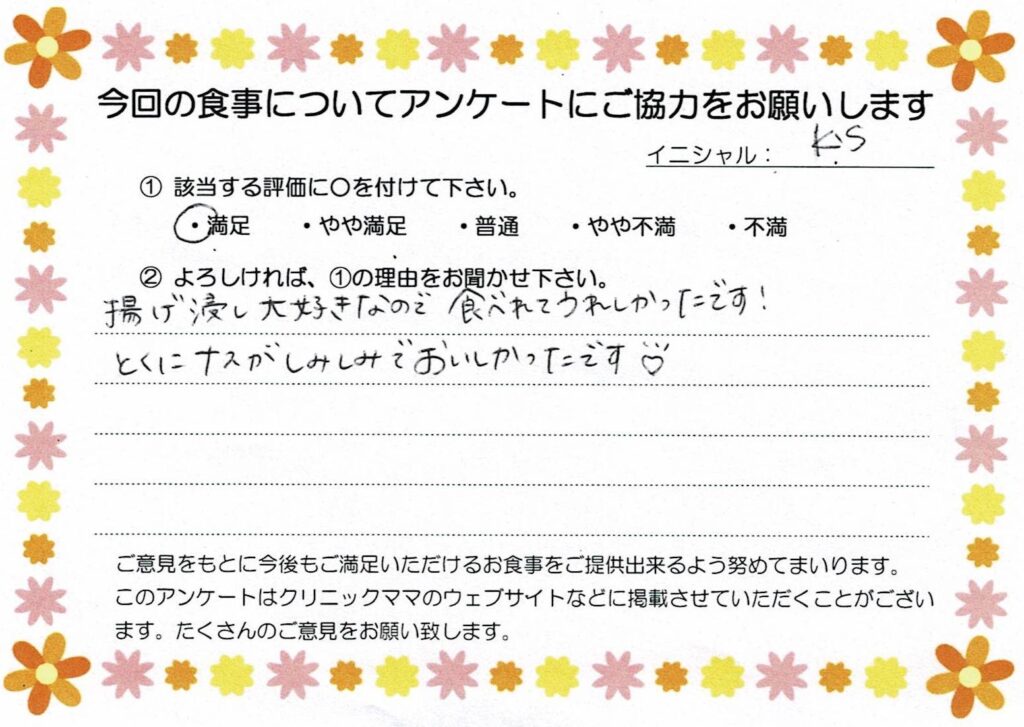 今回の食事についてアンケートにご協力をお願いします
イニシャル： K.S
① 該当する評価に〇を付けて下さい。
・満足 ・やや満足 ・普通 ・やや不満 ・不満
② よろしければ、①の理由をお聞かせ下さい。
揚げ浸し大好きなので 食べれてうれしかったです！
とくにナスがしみしみでおいしかったです♡
ご意見をもとに今後もご満足いただけるお食事をご提供出来るよう努めてまいります。
このアンケートはクリニックママのウェブサイトなどに掲載させていただくことがござい
ます。たくさんのご意見をお願い致します。